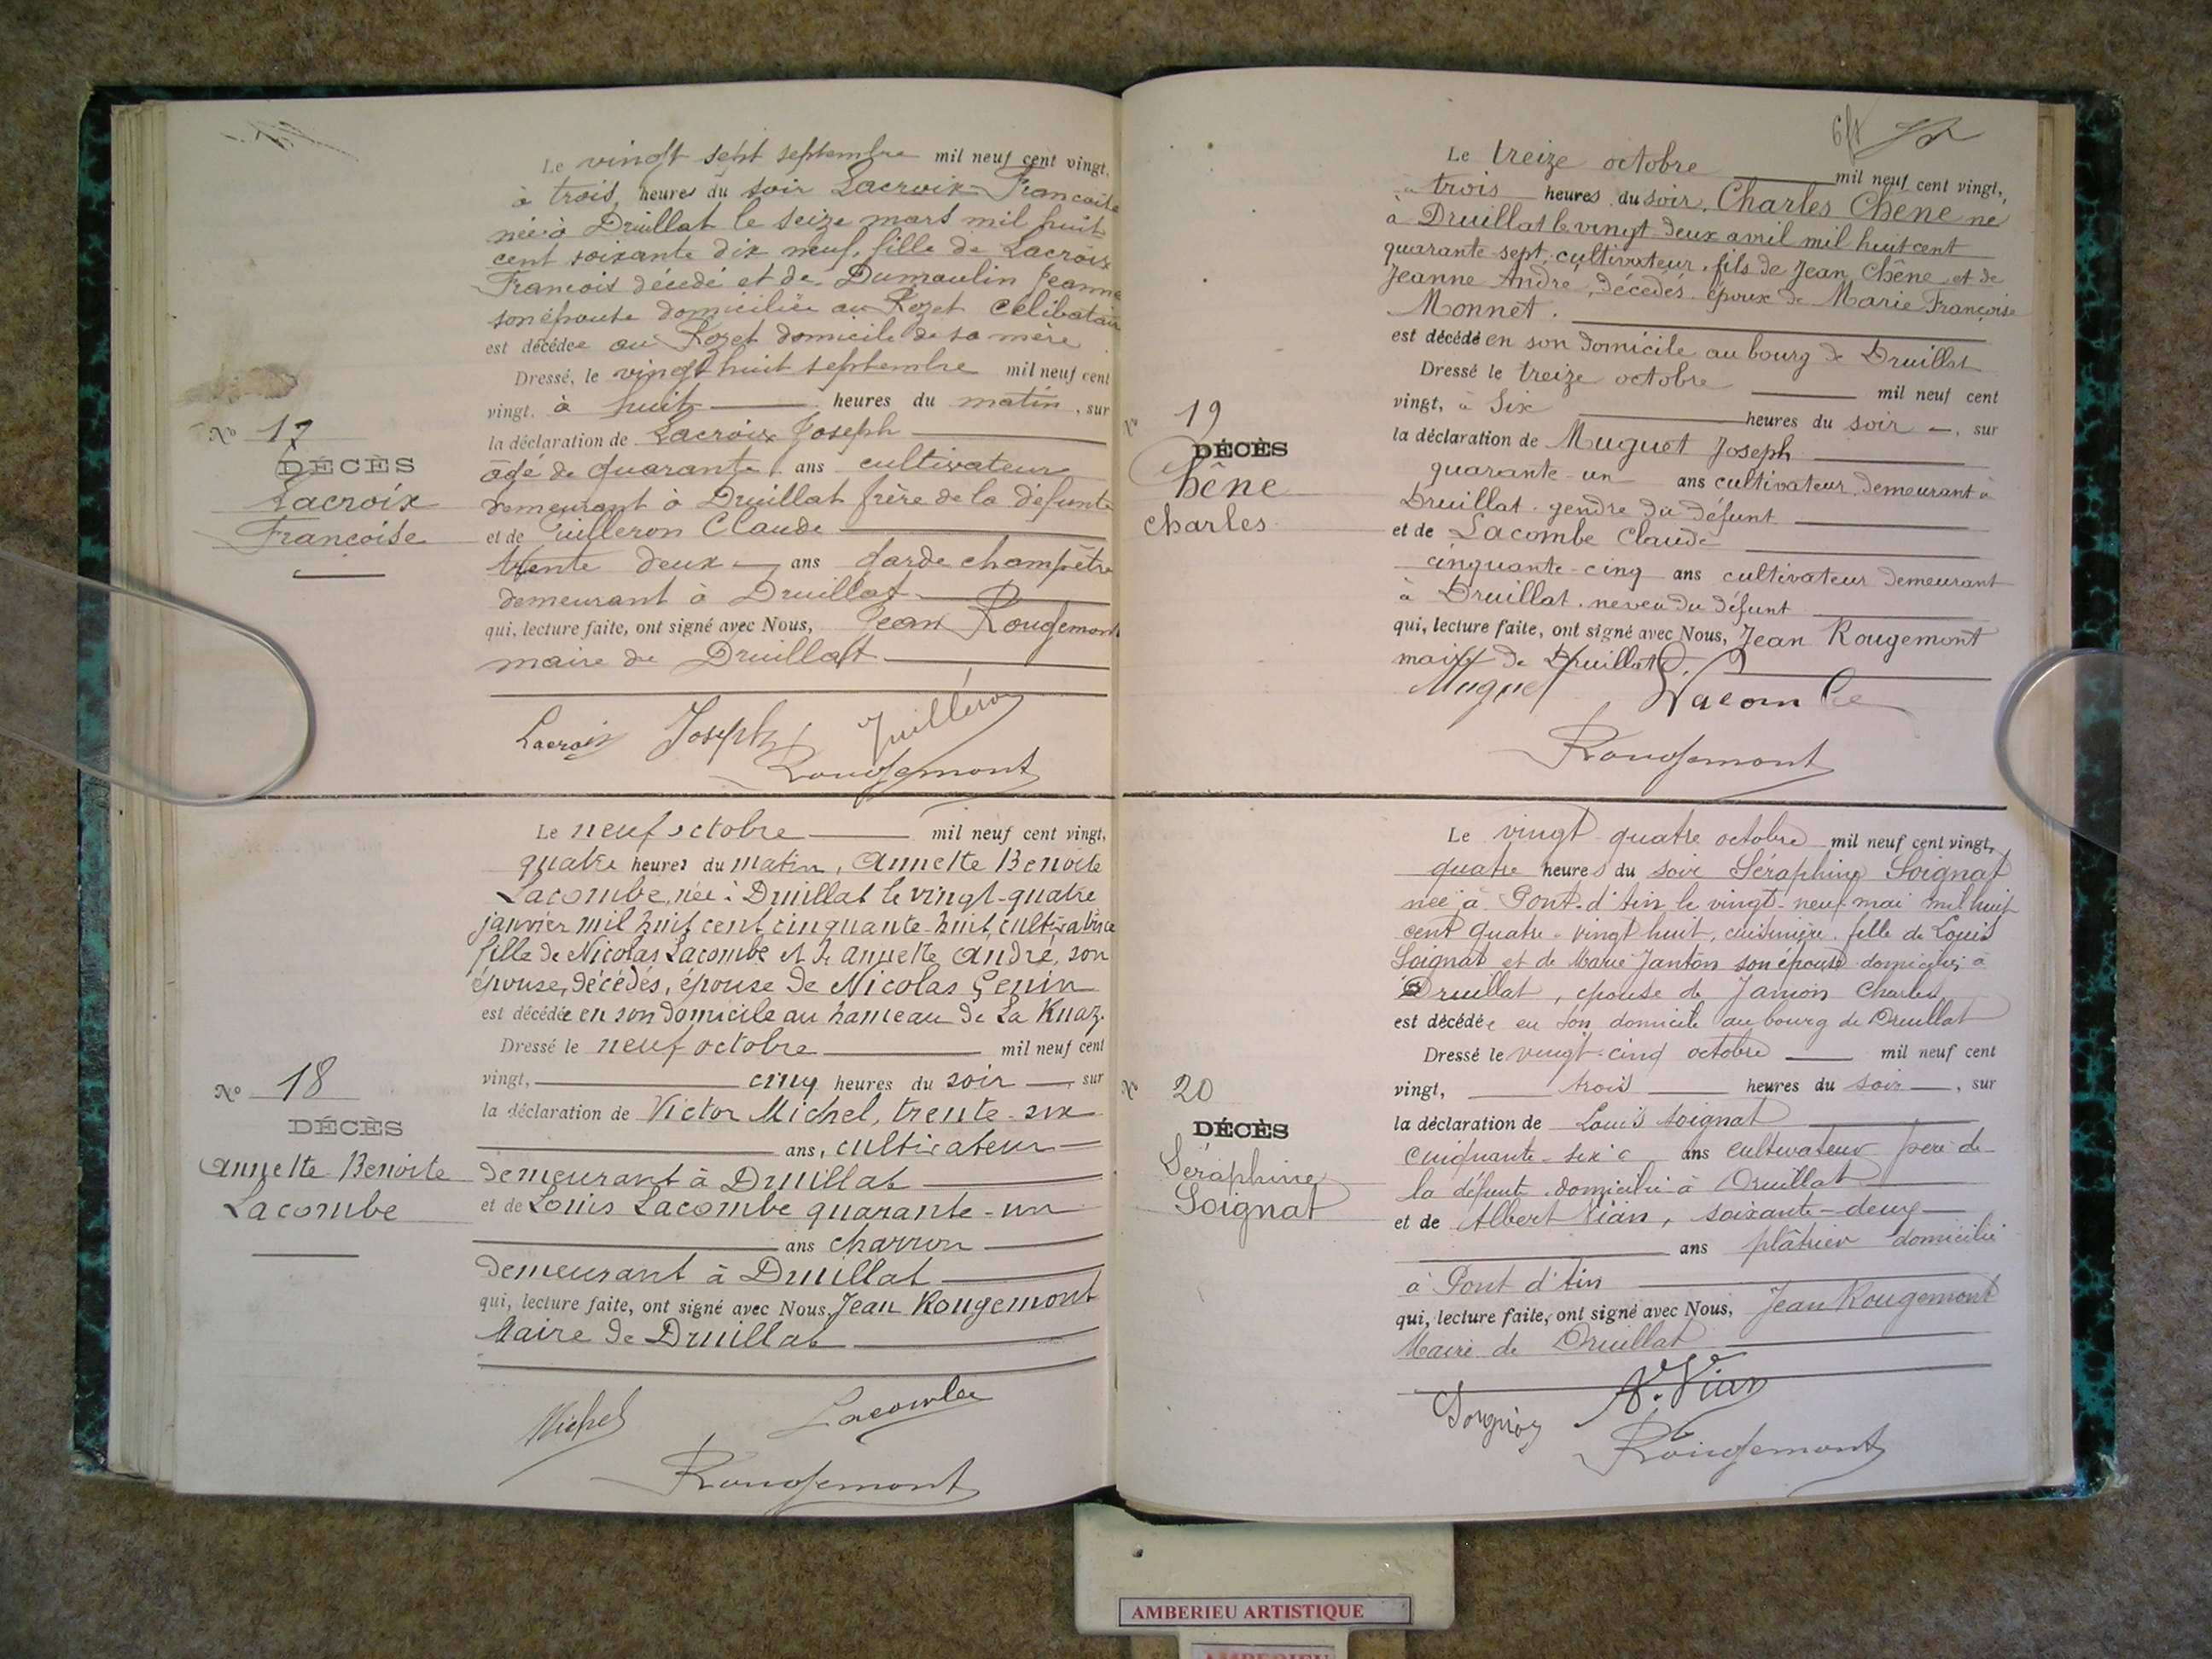 Le vingt sept septembre mil neuf cent vingt,
à trois heures du soir Lacroix Francoise
née à Druillat le seize mars mil huit
cent soixante dix neuf, fille de Lacroix
Francois décédé et de Dumoulin Jeanne
son épouse domiciliée au Rozet célibataire
est décédée au Rozet domicile de sa mère
Dressé, le vingt huit septembre mil neuf cent
vingt, à huit heures du matin, sur
la déclaration de Lacroix Joseph
âgé de quarante ans cultivateur
demeurant à Druillat frère de la défunte
et de Juilleron Claude
trente deux ans Garde champêtre
demeurant à Druillat
qui, lecture faite, ont signé avec Nous, Jean Rougemont
maire de Druillat
Nº 17
DÉCÈS
Lacroix
Francoise
Lacroix Joseph Juilleron
Rougemont
Le neuf octobre mil neuf cent vingt,
quatre heures du matin, Annette Benoite
Lacombe, née à Druillat le vingt-quatre
janvier mil huit cent cinquante-huit, cultivatrice
fille de Nicolas Lacombe et de Annette André, son
épouse, décédés, épouse de Nicolas Genin
est décédée en son domicile au hameau de La Ruaz.
Dressé le neuf octobre mil neuf cent
vingt, cinq heures du soir, sur
la déclaration de Victor Michel, trente-six
ans, cultivateur
demeurant à Druillat
et de Louis Lacombe quarante-un
ans charron
demeurant à Druillat
qui, lecture faite, ont signé avec Nous, Jean Rougemont
Maire de Druillat
Nº 18
DÉCÈS
Annette Benoite
Lacombe
Michel Lacombe
Rougemont
Le treize octobre mil neuf cent vingt,
à trois heures du soir, Charles Chêne né
à Druillat le vingt-deux avril mil huit cent
quarante-sept, cultivateur, fils de Jean Chêne et de
Jeanne André, décédés, époux de Marie Françoise
Monnet.
est décédé en son domicile au bourg de Druillat
Dressé le treize octobre mil neuf cent
vingt, à six heures du soir, sur
la déclaration de Muguet Joseph
quarante-un ans cultivateur, demeurant à
Druillat gendre du défunt
et de Lacombe Claude
cinquante-cinq ans cultivateur demeurant
à Druillat, neveu du défunt
qui, lecture faite, ont signé avec Nous, Jean Rougemont
maire de Druillat.
Nº 19
DÉCÈS
Chêne
Charles
Muguet Lacombe
Rougemont
Le vingt-quatre octobre mil neuf cent vingt,
quatre heures du soir Séraphine Soignat
née à Pont-d'Ain le vingt-neuf mai mil huit
cent quatre-vingt huit, cuisinière, fille de Louis
Soignat et de Marie Janton son épouse domiciliés à
Druillat, épouse de Jamon Charles
est décédée en son domicile au bourg de Druillat
Dressé le vingt-cinq octobre mil neuf cent
vingt, trois heures du soir, sur
la déclaration de Louis Soignat
cinquante-six ans cultivateur père de
la défunte domicilié à Druillat
et de Albert Vian, soixante-deux
ans plâtrier domicilié
à Pont d'Ain
qui, lecture faite, ont signé avec Nous, Jean Rougemont
Maire de Druillat
Nº 20
DÉCÈS
Séraphine
Soignat
Soignat A. Vian
Rougemont
AMBERIEU ARTISTIQUE
AMBERIEU